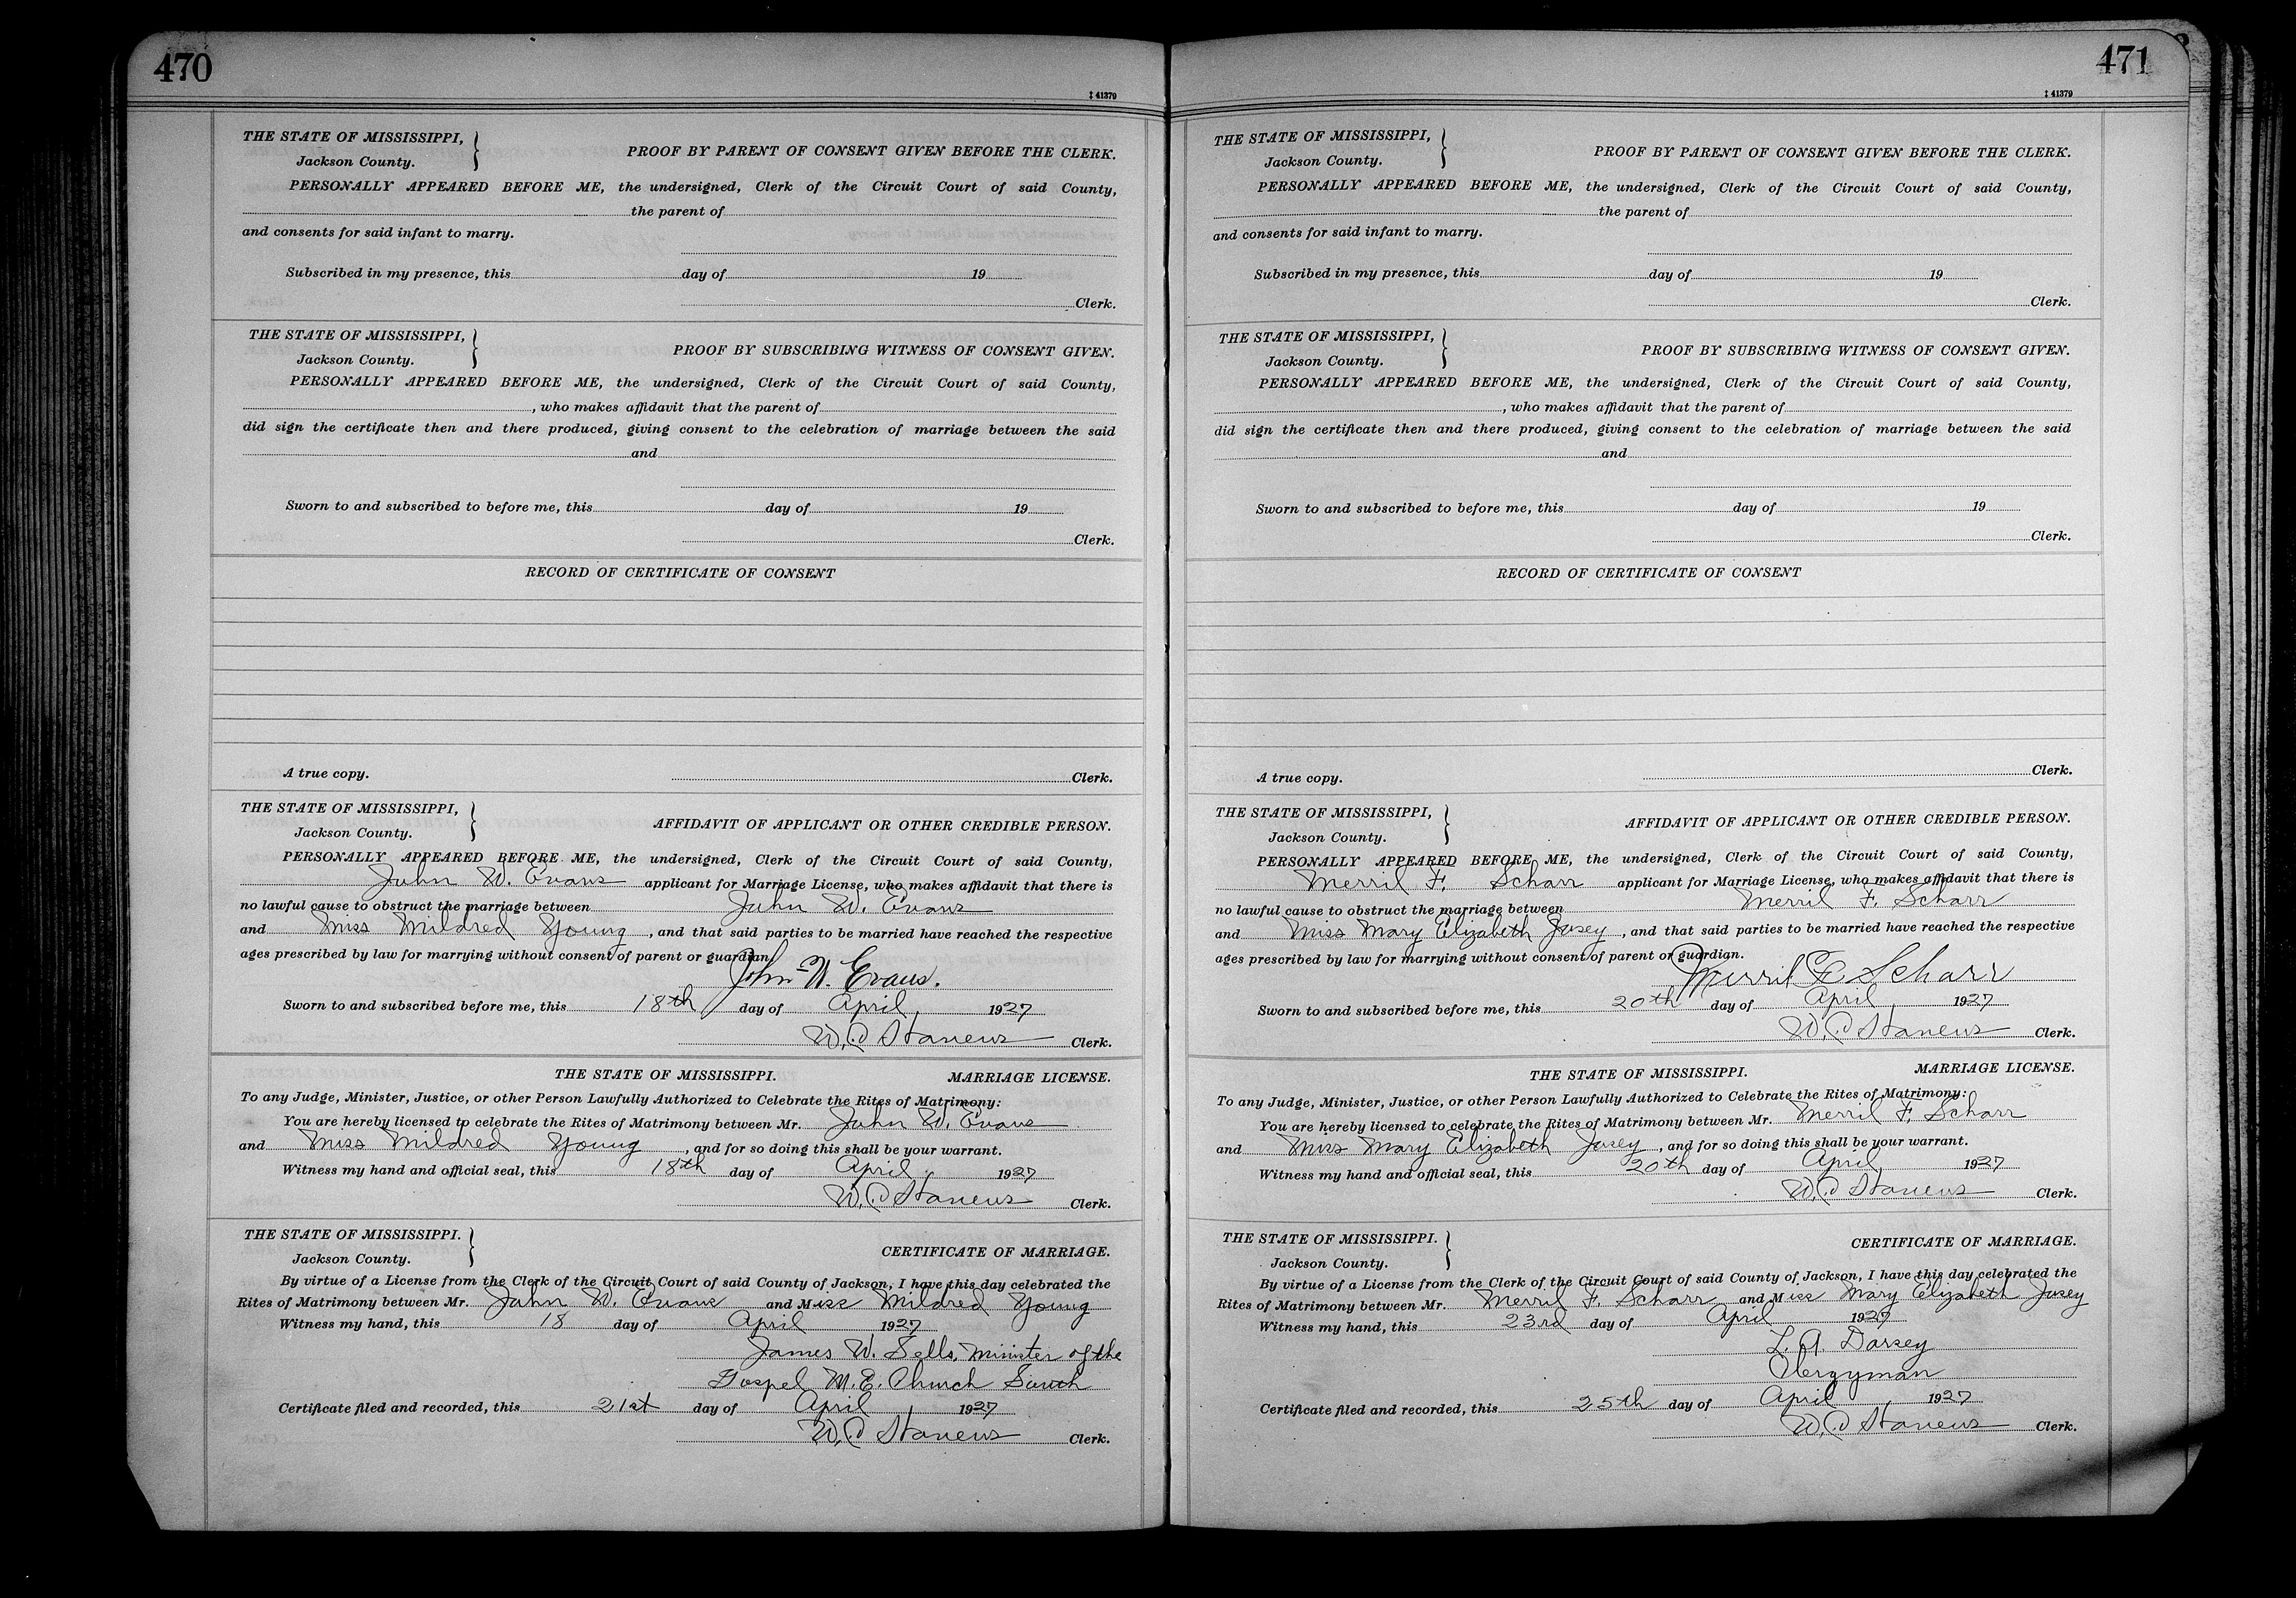 470
‡ 41379
THE STATE OF MISSISSIPPI,
Jackson County.
PROOF BY PARENT OF CONSENT GIVEN BEFORE THE CLERK.
PERSONALLY APPEARED BEFORE ME, the undersigned, Clerk of the Circuit Court of said County,
the parent of
and consents for said infant to marry.
Subscribed in my presence, this day of 19
Clerk.
THE STATE OF MISSISSIPPI,
Jackson County.
PROOF BY SUBSCRIBING WITNESS OF CONSENT GIVEN.
PERSONALLY APPEARED BEFORE ME, the undersigned, Clerk of the Circuit Court of said County,
, who makes affidavit that the parent of
did sign the certificate then and there produced, giving consent to the celebration of marriage between the said
and
Sworn to and subscribed to before me, this day of 19
Clerk.
RECORD OF CERTIFICATE OF CONSENT
A true copy. Clerk.
THE STATE OF MISSISSIPPI,
Jackson County.
AFFIDAVIT OF APPLICANT OR OTHER CREDIBLE PERSON.
PERSONALLY APPEARED BEFORE ME, the undersigned, Clerk of the Circuit Court of said County,
John W. Evans applicant for Marriage License, who makes affidavit that there is
no lawful cause to obstruct the marriage between John W. Evans
and Miss Mildred Young, and that said parties to be married have reached the respective
ages prescribed by law for marrying without consent of parent or guardian.
John W. Evans.
Sworn to and subscribed before me, this 18th day of April, 1927
Clerk.
THE STATE OF MISSISSIPPI. MARRIAGE LICENSE.
To any Judge, Minister, Justice, or other Person Lawfully Authorized to Celebrate the Rites of Matrimony:
You are hereby licensed to celebrate the Rites of Matrimony between Mr. John W. Evans
and Miss Mildred Young, and for so doing this shall be your warrant.
Witness my hand and official seal, this 18th day of April, 1927
Clerk.
THE STATE OF MISSISSIPPI.
Jackson County.
CERTIFICATE OF MARRIAGE.
By virtue of a License from the Clerk of the Circuit Court of said County of Jackson, I have this day celebrated the
Rites of Matrimony between Mr. John W. Evans and Miss Mildred Young
Witness my hand, this 18 day of April 1927
James W. Sells, Minister of the
Gospel M.E. Church South
Certificate filed and recorded, this 21st day of April, 1927
Clerk.
471
‡ 41379
THE STATE OF MISSISSIPPI,
Jackson County.
PROOF BY PARENT OF CONSENT GIVEN BEFORE THE CLERK.
PERSONALLY APPEARED BEFORE ME, the undersigned, Clerk of the Circuit Court of said County,
the parent of
and consents for said infant to marry.
Subscribed in my presence, this day of 19
Clerk.
THE STATE OF MISSISSIPPI,
Jackson County.
PROOF BY SUBSCRIBING WITNESS OF CONSENT GIVEN.
PERSONALLY APPEARED BEFORE ME, the undersigned, Clerk of the Circuit Court of said County,
, who makes affidavit that the parent of
did sign the certificate then and there produced, giving consent to the celebration of marriage between the said
and
Sworn to and subscribed to before me, this day of 19
Clerk.
RECORD OF CERTIFICATE OF CONSENT
A true copy. Clerk.
THE STATE OF MISSISSIPPI,
Jackson County.
AFFIDAVIT OF APPLICANT OR OTHER CREDIBLE PERSON.
PERSONALLY APPEARED BEFORE ME, the undersigned, Clerk of the Circuit Court of said County,
Merril F. Scharr applicant for Marriage License, who makes affidavit that there is
no lawful cause to obstruct the marriage between Merril F. Scharr
and Miss Mary Elizabeth, and that said parties to be married have reached the respective
ages prescribed by law for marrying without consent of parent or guardian.
Merril F Scharr
Sworn to and subscribed before me, this 20th day of April, 1927
Clerk.
THE STATE OF MISSISSIPPI. MARRIAGE LICENSE.
To any Judge, Minister, Justice, or other Person Lawfully Authorized to Celebrate the Rites of Matrimony:
You are hereby licensed to celebrate the Rites of Matrimony between Mr. Merril F. Scharr
and Miss Mary Elizabeth, and for so doing this shall be your warrant.
Witness my hand and official seal, this 20th day of April, 1927
Clerk.
THE STATE OF MISSISSIPPI.
Jackson County.
CERTIFICATE OF MARRIAGE.
By virtue of a License from the Clerk of the Circuit Court of said County of Jackson, I have this day celebrated the
Rites of Matrimony between Mr. Merril F. Scharr and Miss Mary Elizabeth
Witness my hand, this 23rd day of April 1927
L. A. Darsey
Clergyman
Certificate filed and recorded, this 25th day of April, 1927
Clerk.